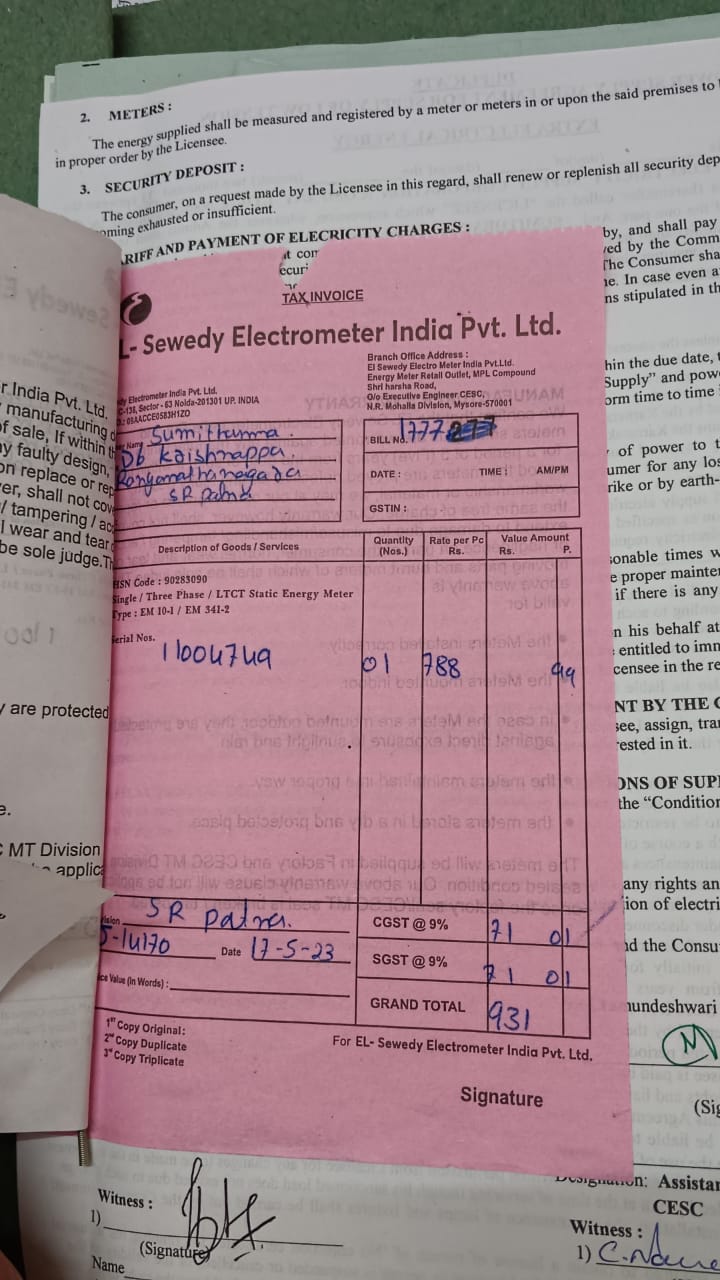 2. METERS :
The energy supplied shall be measured and registered by a meter or meters in or upon the said premises to
in proper order by the Licensee.
3. SECURITY DEPOSIT :
The consumer, on a request made by the Licensee in this regard, shall renew or replenish all security dep
oming exhausted or insufficient.
ARIFF AND PAYMENT OF ELECRICITY CHARGES :
by, and shall pay
ved by the Comm
The Consumer sha
ne. In case even a
ns stipulated in th
hin the due date,
Supply" and pow
orm time to time
of power to t
umer for any los
rike or by earth-
sonable times w
e proper mainte
if there is any
n his behalf at
entitled to imn
censee in the re
NT BY THE
see, assign, tra
ested in it.
ONS OF SUP
the "Condition
any rights an
ion of electri
nd the Consu
nundeshwari
(Sig
r India Pvt. Ltd.
manufacturing
of sale, If within t
ny faulty design,
on replace or rep
er, shall not cov
/ tampering / acc
l wear and tear
be sole judge.Th
y are protected
MT Division
applic
TAX INVOICE
L- Sewedy Electrometer India Pvt. Ltd.
dy Electrometer India Pvt. Ltd.
C-138, Sector - 63 Noida-201301 UP. INDIA
Branch Office Address :
El Sewedy Electro Meter India Pvt.Ltd.
Energy Meter Retail Outlet, MPL Compound
Shri harsha Road,
O/o Executive Engineer CESC,
N.R. Mohalla Division, Mysore-570001
Name Sumithamma
D6 Kaishnappa.
Ranganathanagara
SR patna
BILL No. 1777
DATE : TIME : AM/PM
GSTIN :
Description of Goods / Services Quantity (Nos.) Rate per Pc Rs. Value Amount Rs. P.
HSN Code : 90283090
Single / Three Phase / LTCT Static Energy Meter
Type : EM 10-1 / EM 341-2
Serial Nos.
11004749 01 788 99
SR patna.
CGST @ 9% 71 01
5-14170 Date 17-5-23
SGST @ 9% 71 01
ce Value (In Words) :
GRAND TOTAL 931
1st Copy Original:
2nd Copy Duplicate
3rd Copy Triplicate
For EL- Sewedy Electrometer India Pvt. Ltd.
Signature
Assistan
CESC
Witness :
1)
(Signature)
Name
Witness :
1)